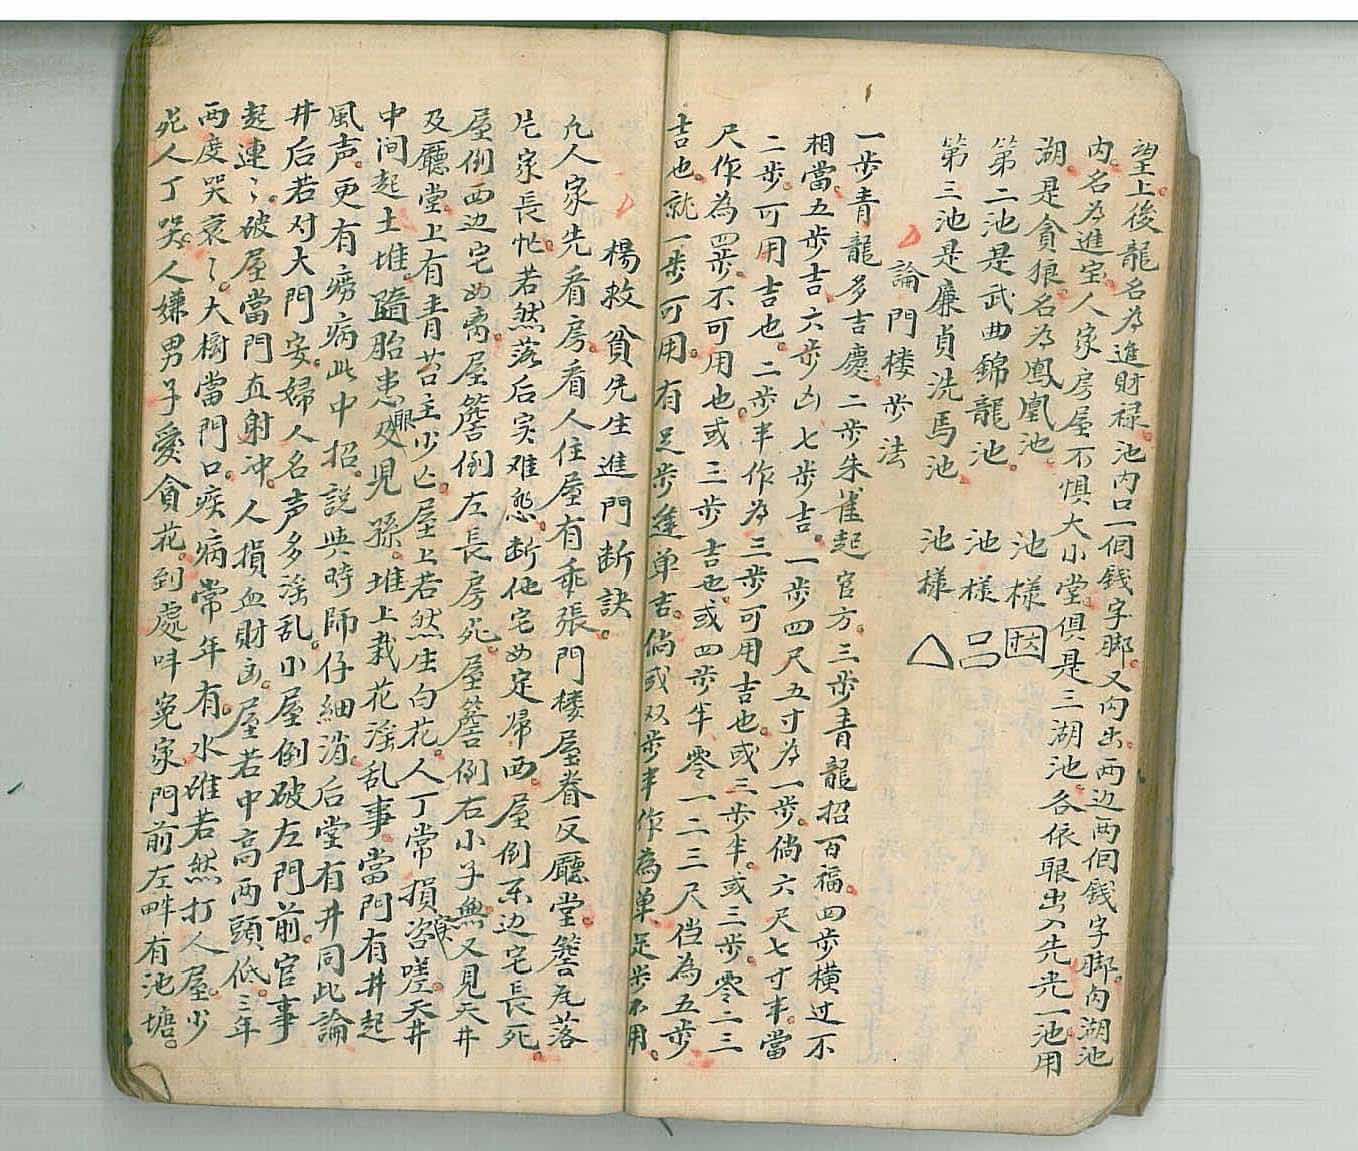 望上。後龍名為進財祿。池內口一個錢字脚。又內出。两边两個錢字脚。內湖池
內。名為進宝。人家房屋不惧大小堂。俱是三湖池。各依眼出入先光一池用
湖是貪狼。名為鳳凰池。池様
第二池是武曲錦龍池。池様
第三池是廉貞洗馬池。池様
論門楼步法
一步青龍多吉慶。二步朱雀起官方。三步青龍招百福。四步横过不
相當。五步吉。六步凶。七步吉。一步四尺五寸為一步。倘六尺七寸半。當
二步。可用吉也。二步半作為三步可用吉也。或三步半。或三步。零二三
尺作為四步。不可用也。或三步吉也。或四步半。零一二三尺。但為五步
吉也。就一步可用。有足步逢单吉。倘或双步半作為单。足步不用。
楊救貧先生進門断訣。
凢人家先看房。看人住屋有乖張門楼屋脊反廳堂。簷瓦落
片家長忙。若然落后实难愁。断他宅女定帰西。屋倒东边宅長死。
屋倒西边宅女离。屋簷倒左長房死。屋簷倒右小子無。又見天井
及廳堂。上有青苔主少亡。屋上若然生白花。人丁常損咨嗟。天井
中间起土堆。隨胎患眼及児孫。堆上栽花淫乱事。當門有井起
風声。更有癆病此中招。説與時師仔細消。后堂有井同此論
井后若对大門安。婦人名声多淫乱。小屋倒破左門前。官事
起連〻。破屋當門直射冲。人損血財凶。屋若中高两頭低。三年
两度哭哀〻。大樹當門口。疾病常年有。水堆若然打人屋。少
死人丁哭。人嫌男子愛貪花。到處呌冤家門前左畔有池塘。